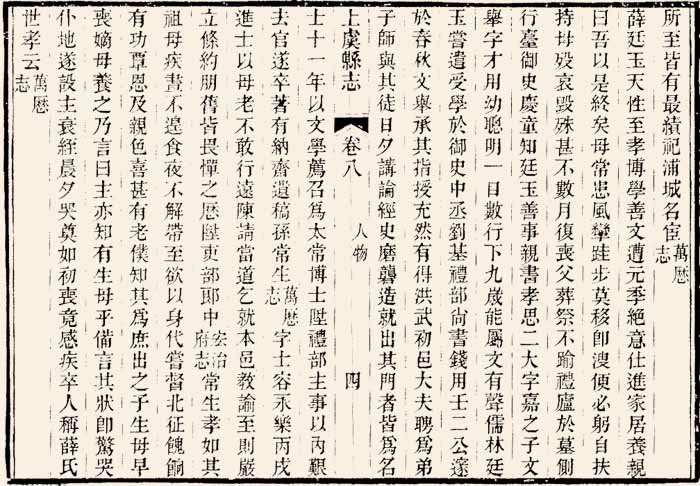 所至皆有最績祀浦城名宦萬厯志
薛廷玉天性至孝博學善文遭元季絕意仕進家居養親
曰吾以是終矣母常患風攣跬步莫移卽溲便必躬自扶
持母歿哀毀殊甚不數月復喪父葬祭不踰禮廬於墓側
行臺御史慶童知廷玉善事親書孝思二大字嘉之子文
舉字才用幼聰明一目數行下九歲能屬文有聲儒林廷
玉嘗遣受學於御史中丞劉基禮部尙書錢用壬二公邃
於春秋文舉承其指授充然有得洪武初邑大夫聘爲弟
子師與其徒日夕講論經史磨礱造就出其門者皆爲名
上虞縣志 卷八 人物 四
士十一年以文學薦召爲太常博士陞禮部主事以內艱
去官遂卒著有納齋遺稿孫常生萬厯志字士容永樂丙戌
進士以母老不敢行遠陳請當道乞就本邑敎諭至則嚴
立條約朋儕皆畏憚之厯陞吏部郎中安治府志常生孝如其
祖母疾晝不遑食夜不解帶至欲以身代嘗督北征餽餉
有功覃恩及親色喜甚有老僕知其爲庶出之子生母早
喪嫡母養之乃言曰主亦知有生母乎備言其狀卽驚哭
仆地遂設主衰絰晨夕哭奠如初喪竟感疾卒人稱薛氏
世孝云萬厯志